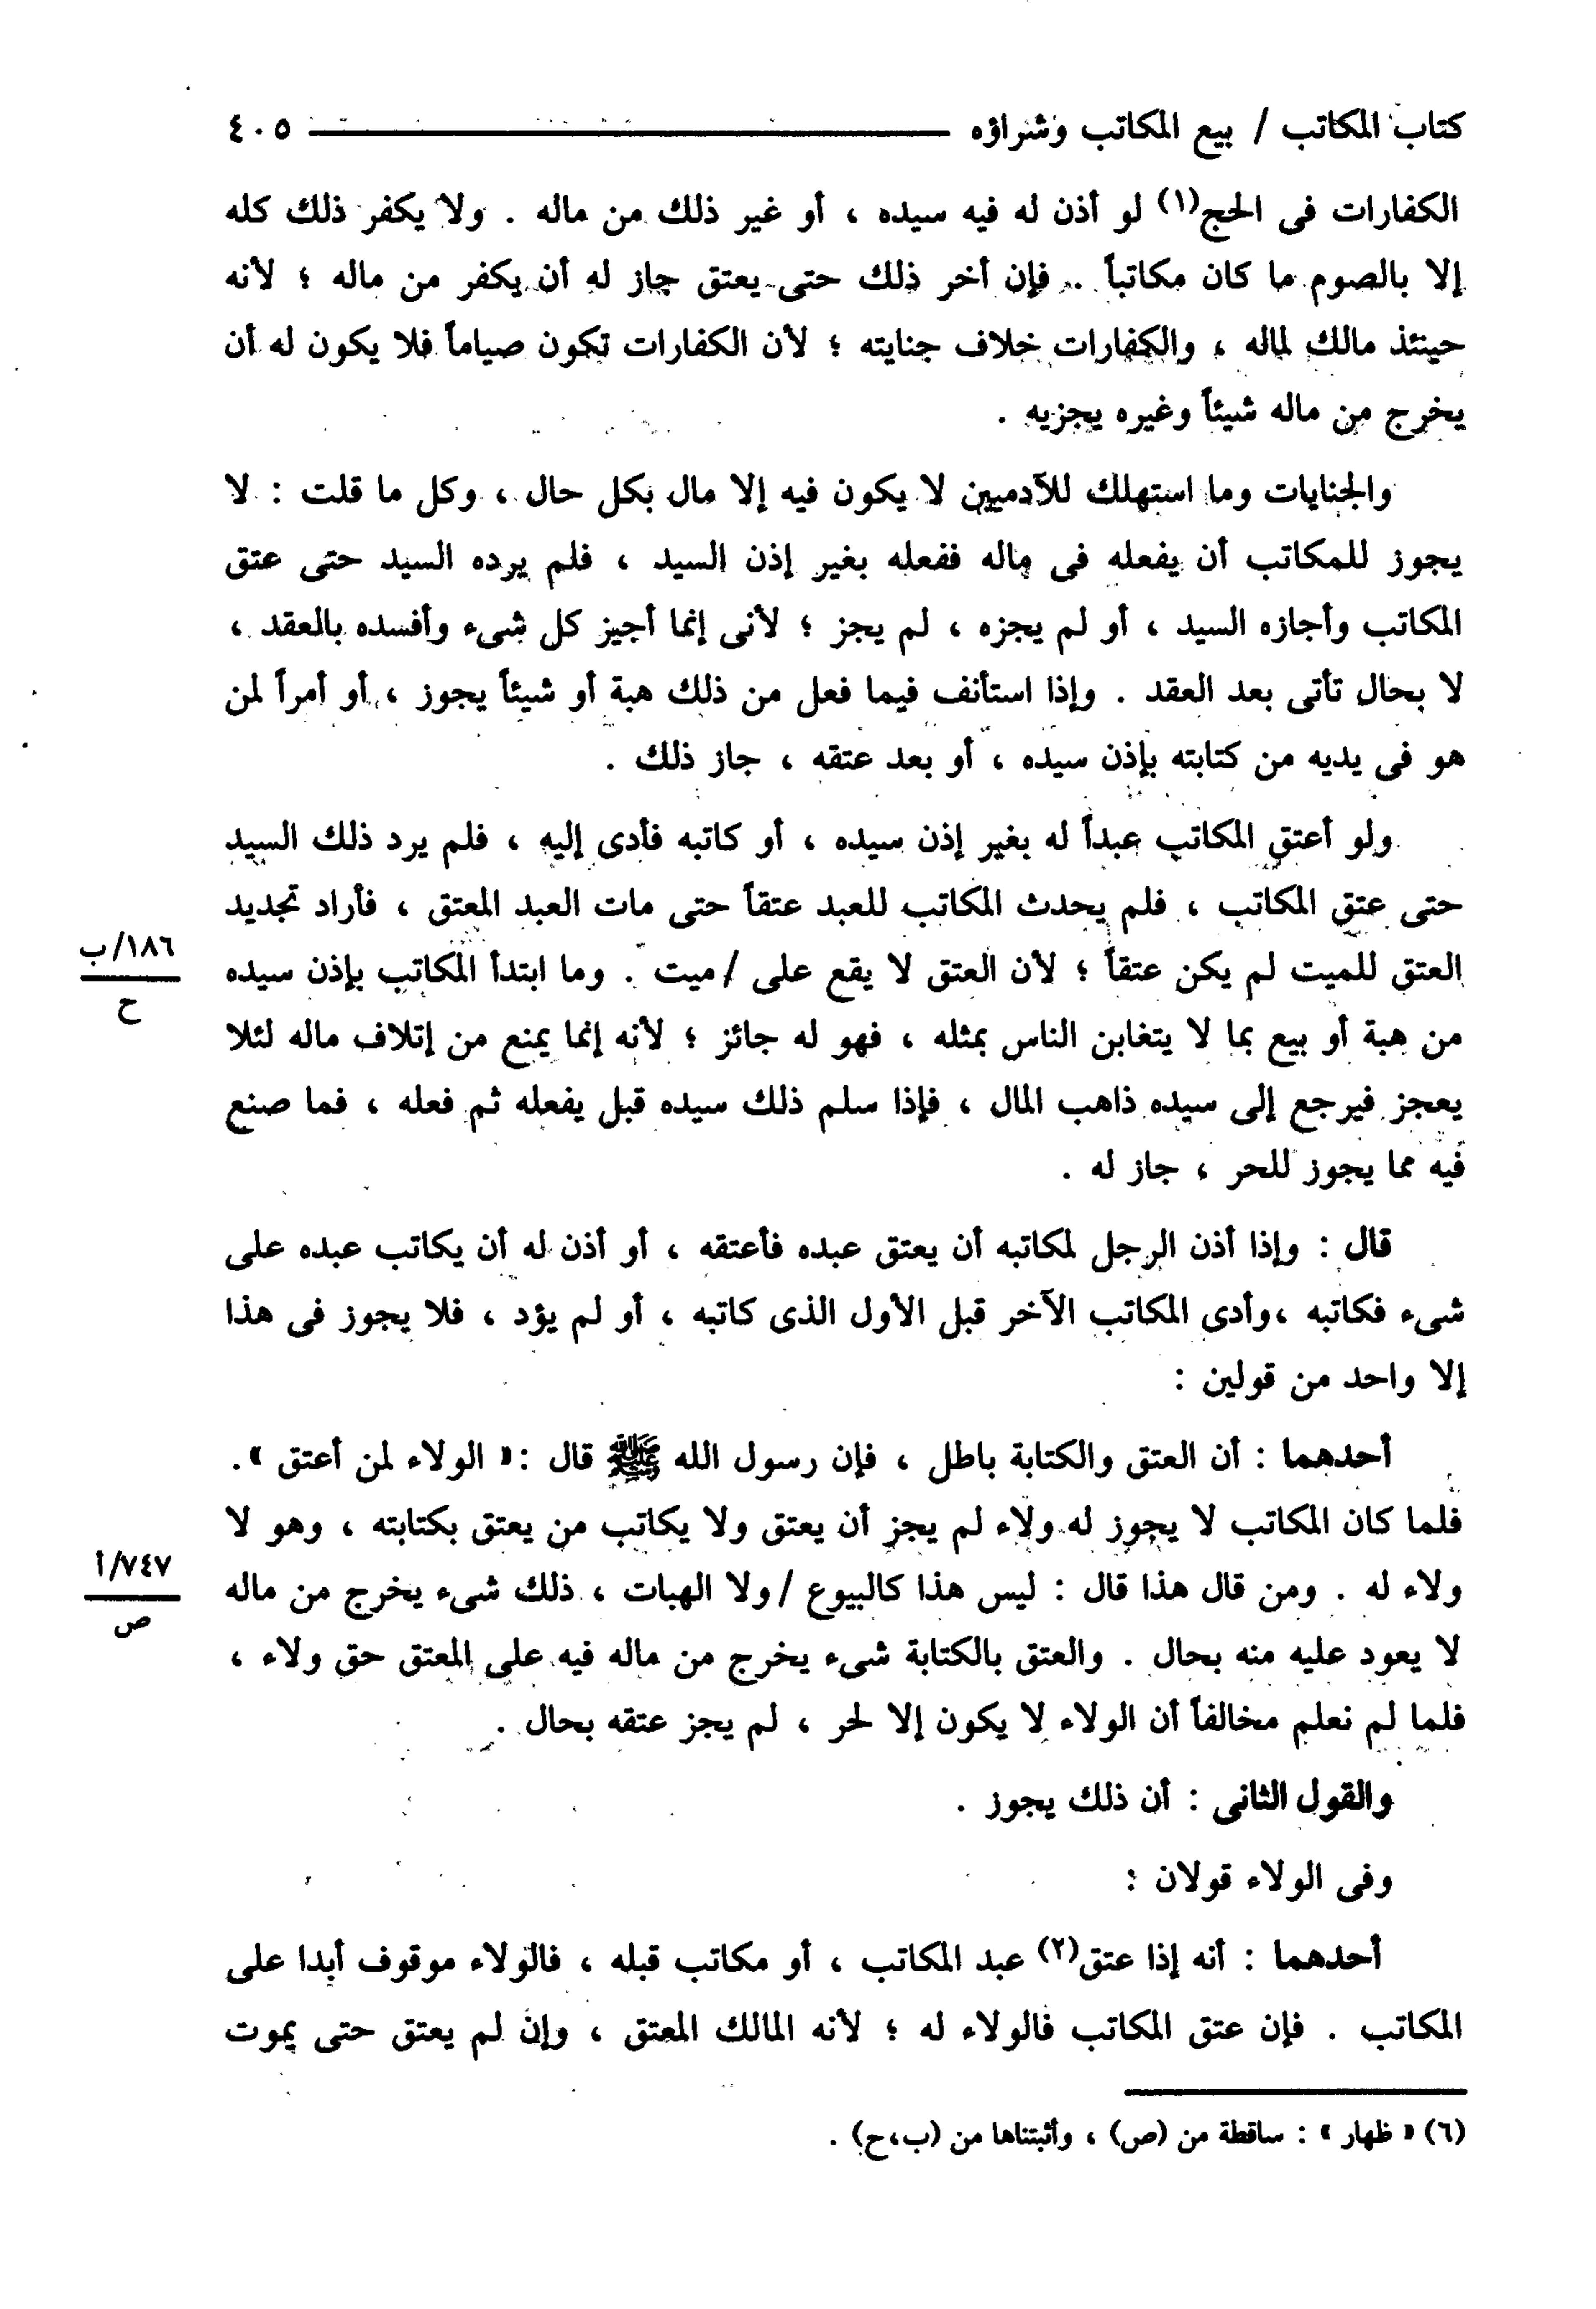 كتاب المكاتب / بيع المكاتب وشراؤه ــــــــ ٤٠٥
الكفارات فى الحج(١) لو أذن له فيه سيده ، أو غير ذلك من ماله . ولا يكفر ذلك كله
إلا بالصوم ما كان مكاتباً . فإن أخر ذلك حتى يعتق جاز له أن يكفر من ماله ؛ لأنه
حينئذ مالك لماله ، والكفارات خلاف جنايته ؛ لأن الكفارات تكون صياماً فلا يكون له أن
يخرج من ماله شيئاً وغيره يجزيه .
والجنايات وما استهلك للآدميين لا يكون فيه إلا مال بكل حال ، وكل ما قلت : لا
يجوز للمكاتب أن يفعله فى ماله ففعله بغير إذن السيد ، فلم يرده السيد حتى عتق
المكاتب وأجازه السيد ، أو لم يجزه ، لم يجز ؛ لأنى إنما أجيز كل شىء وأفسده بالعقد ،
لا بحال تأتى بعد العقد . وإذا استأنف فيما فعل من ذلك هبة أو شيئاً يجوز ، أو أمراً لمن
هو فى يديه من كتابته بإذن سيده ، أو بعد عتقه ، جاز ذلك .
ولو أعتق المكاتب عبداً له بغير إذن سيده ، أو كاتبه فأدى إليه ، فلم يرد ذلك السيد
حتى عتق المكاتب ، فلم يحدث المكاتب للعبد عتقاً حتى مات العبد المعتق ، فأراد تجديد
العتق للميت لم يكن عتقاً ؛ لأن العتق لا يقع على / ميت . وما ابتدأ المكاتب بإذن سيده
١٨٦/ب
ح
من هبة أو بيع بما لا يتغابن الناس بمثله ، فهو له جائز ؛ لأنه إنما يمنع من إتلاف ماله لئلا
يعجز فيرجع إلى سيده ذاهب المال ، فإذا سلم ذلك سيده قبل يفعله ثم فعله ، فما صنع
فيه مما يجوز للحر ، جاز له .
قال : وإذا أذن الرجل لمكاتبه أن يعتق عبده فأعتقه ، أو أذن له أن يكاتب عبده على
شىء فكاتبه ، وأدى المكاتب الآخر قبل الأول الذى كاتبه ، أو لم يؤد ، فلا يجوز فى هذا
إلا واحد من قولين :
أحدهما : أن العتق والكتابة باطل ، فإن رسول الله ﷺ قال : « الولاء لمن أعتق » .
فلما كان المكاتب لا يجوز له ولاء لم يجز أن يعتق ولا يكاتب من يعتق بكتابته ، وهو لا
ولاء له . ومن قال هذا قال : ليس هذا كالبيوع / ولا الهبات ، ذلك شىء يخرج من ماله
٧٤٧/أ
ص
لا يعود عليه منه بحال . والعتق بالكتابة شىء يخرج من ماله فيه على المعتق حق ولاء ،
فلما لم نعلم مخالفاً أن الولاء لا يكون إلا لحر ، لم يجز عتقه بحال .
والقول الثانى : أن ذلك يجوز .
وفى الولاء قولان :
أحدهما : أنه إذا عتق(٢) عبد المكاتب ، أو مكاتب قبله ، فالولاء موقوف أبدا على
المكاتب . فإن عتق المكاتب فالولاء له ؛ لأنه المالك المعتق ، وإن لم يعتق حتى يموت
(٦) « ظهار » : ساقطة من (ص) ، وأثبتناها من (ب،ح) .